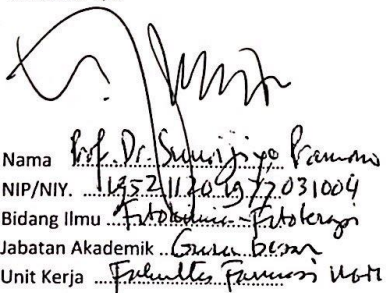 Nama Prof. Dr. Suwijiyo Pramono
NIP/NIY. 195211201977031004
Bidang Ilmu Fitokimia - Fitoterapi
Jabatan Akademik Guru Besar
Unit Kerja Fakultas Farmasi UGM